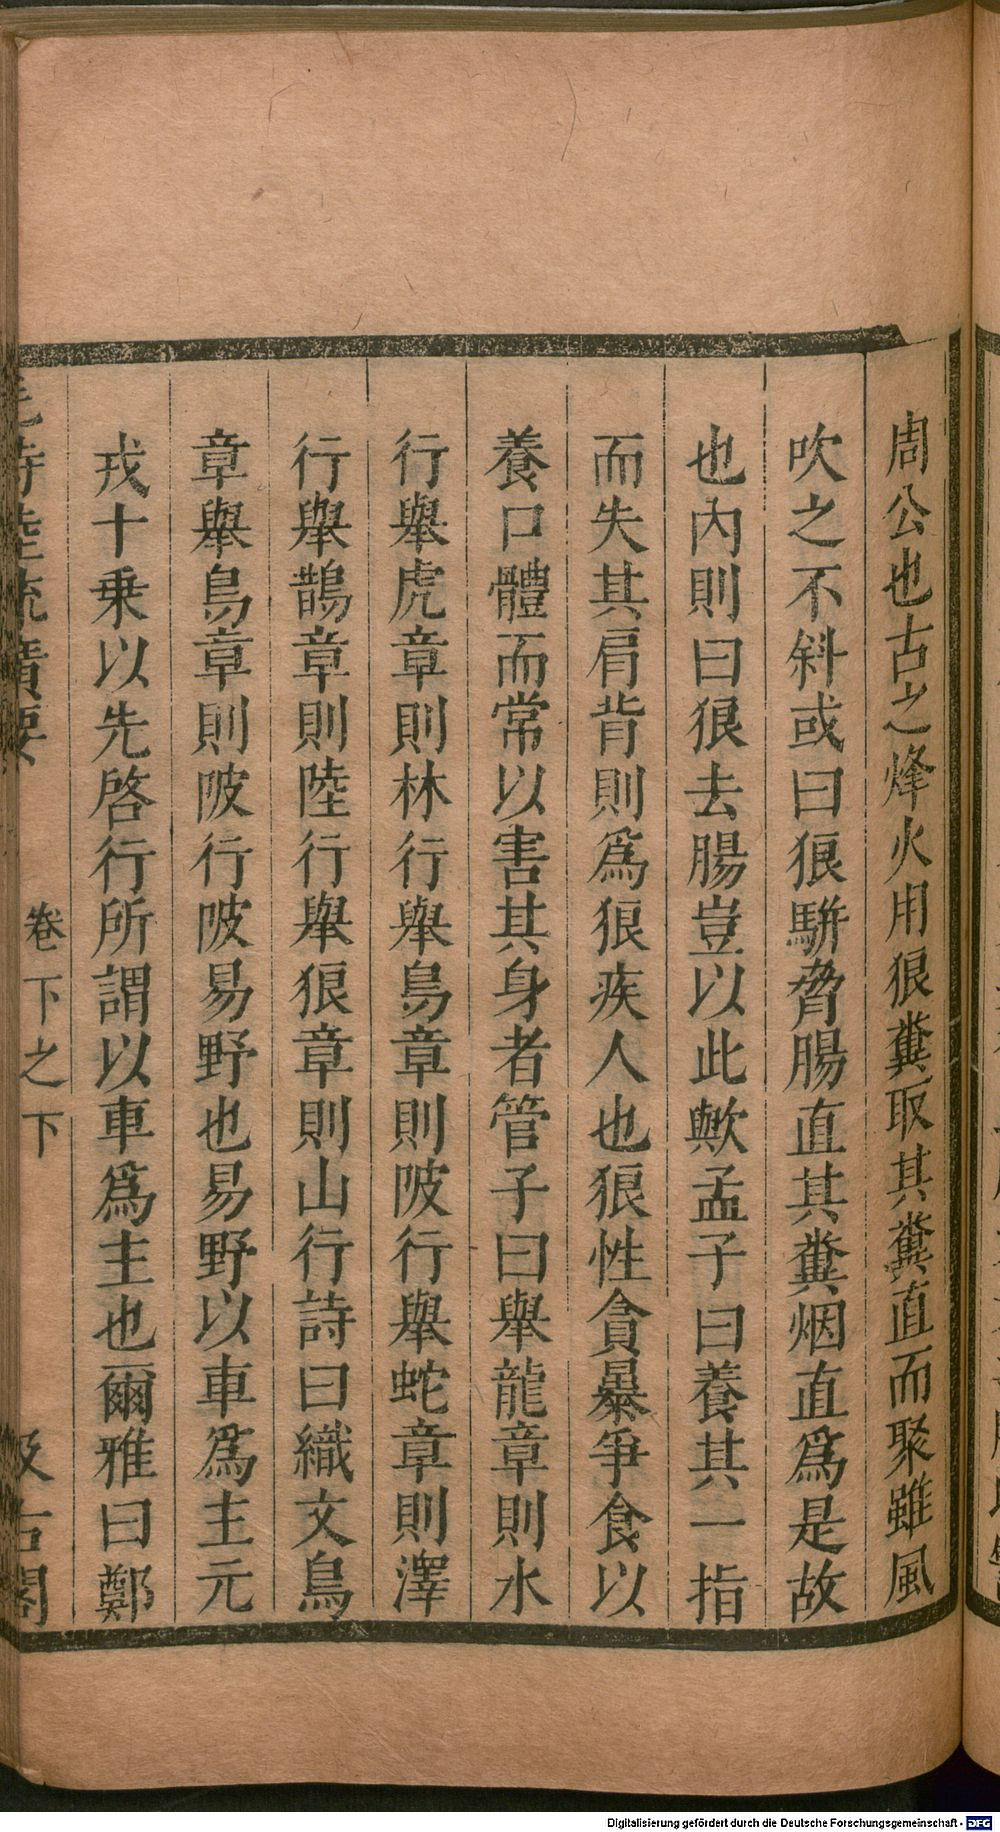 周公也古之烽火用狼糞取其糞直而聚雖風
吹之不斜或曰狼駢脅腸直其糞烟直爲是故
也內則曰狼去腸豈以此歟孟子曰養其一指
而失其肩背則爲狼疾人也狼性貪暴爭食以
養口體而常以害其身者管子曰舉龍章則水
行舉虎章則林行舉鳥章則陂行舉蛇章則澤
行舉鵲章則陸行舉狼章則山行詩曰織文鳥
章舉鳥章則陂行陂易野也易野以車爲主元
戎十乗以先啓行所謂以車爲主也爾雅曰鄭
毛詩陸疏廣要 卷下之下 汲古閣
Digitalisierung gefördert durch die Deutsche Forschungsgemeinschaft - DFG